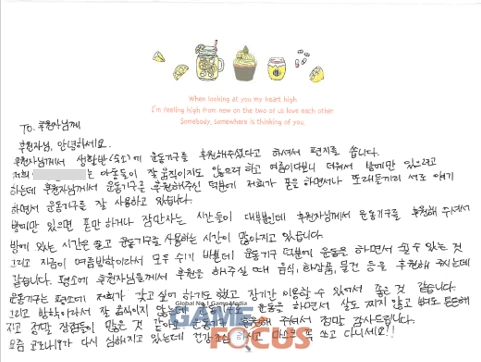 When looking at you my heart high
I'm feeling high from new on the two of us love each other
Somebody, somewhere is thinking of you.
To. 후원자님께
후원자님, 안녕하세요.
후원자님께서 생활반(숙소)에 운동기구를 후원해주셨다고 하셔서 편지를 씁니다.
저희 는 아동들이 잘 움직이지도 않으려 하고 여름이다보니 더워서 방에만 있으려고
하는데 후원자님께서 운동기구를 후원해주신 덕분에 저희가 운동 하면서나 또래들끼리 서로 얘기
하면서 운동기구를 잘 사용하고 있습니다.
방에만 있으면 폰만 하거나 잠만자는 시간들이 대부분인데 후원자님께서 운동기구를 후원해 주셔서
방에 있는 시간은 줄고 운동기구를 사용하는 시간이 많아지고 있습니다.
그리고 지금이 여름방학이라서 모두 쉬기 바쁜데 운동기구 덕분에 운동을 하면서 쉴 수 있는 것
같습니다. 평소에 후원자님들께서 후원을 해주실 때 음식, 화장품, 물건 등을 후원해 주시는데
운동기구는 평소에 저희가 갖고 싶어 하기도 했고 장기간 이용할 수 있어서 좋은 것 같습니다.
그리고 방학이라서 잘 움직이지 않는데 운동을 하면서 살도 찌지 않고 몸도 튼튼해
지고 정말 장점들이 많은 것 같아요. 운동기구 후원해 주셔서 정말 감사드립니다.
요즘 코로나19가 다시 심해지고 있는데 건강조심 하시고 마스크 꼭 쓰고 다니세요!!
Global No.1 Game Media
GAME FOCUS